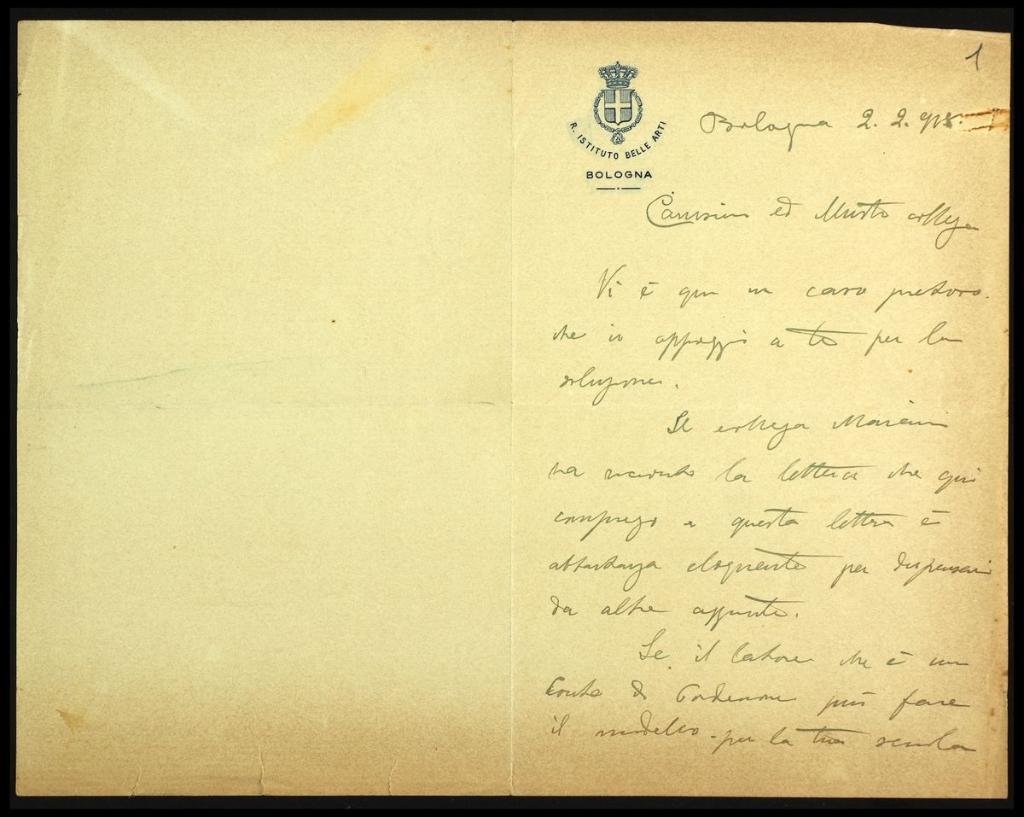 1
R. ISTITUTO BELLE ARTI
BOLOGNA
Bologna 2. 2. 915.
Carissimo ed Illustre collega
Vi è qui un caso pietoso.
che io appoggio a te per la
soluzione.
Il collega
ha ricevuto la lettera che qui
a questa lettera è
abbastanza eloquente per dispensarmi
da altre aggiunte.
Se il latore che è un
Conte di Pordenone può fare
il modello per la tua scuola